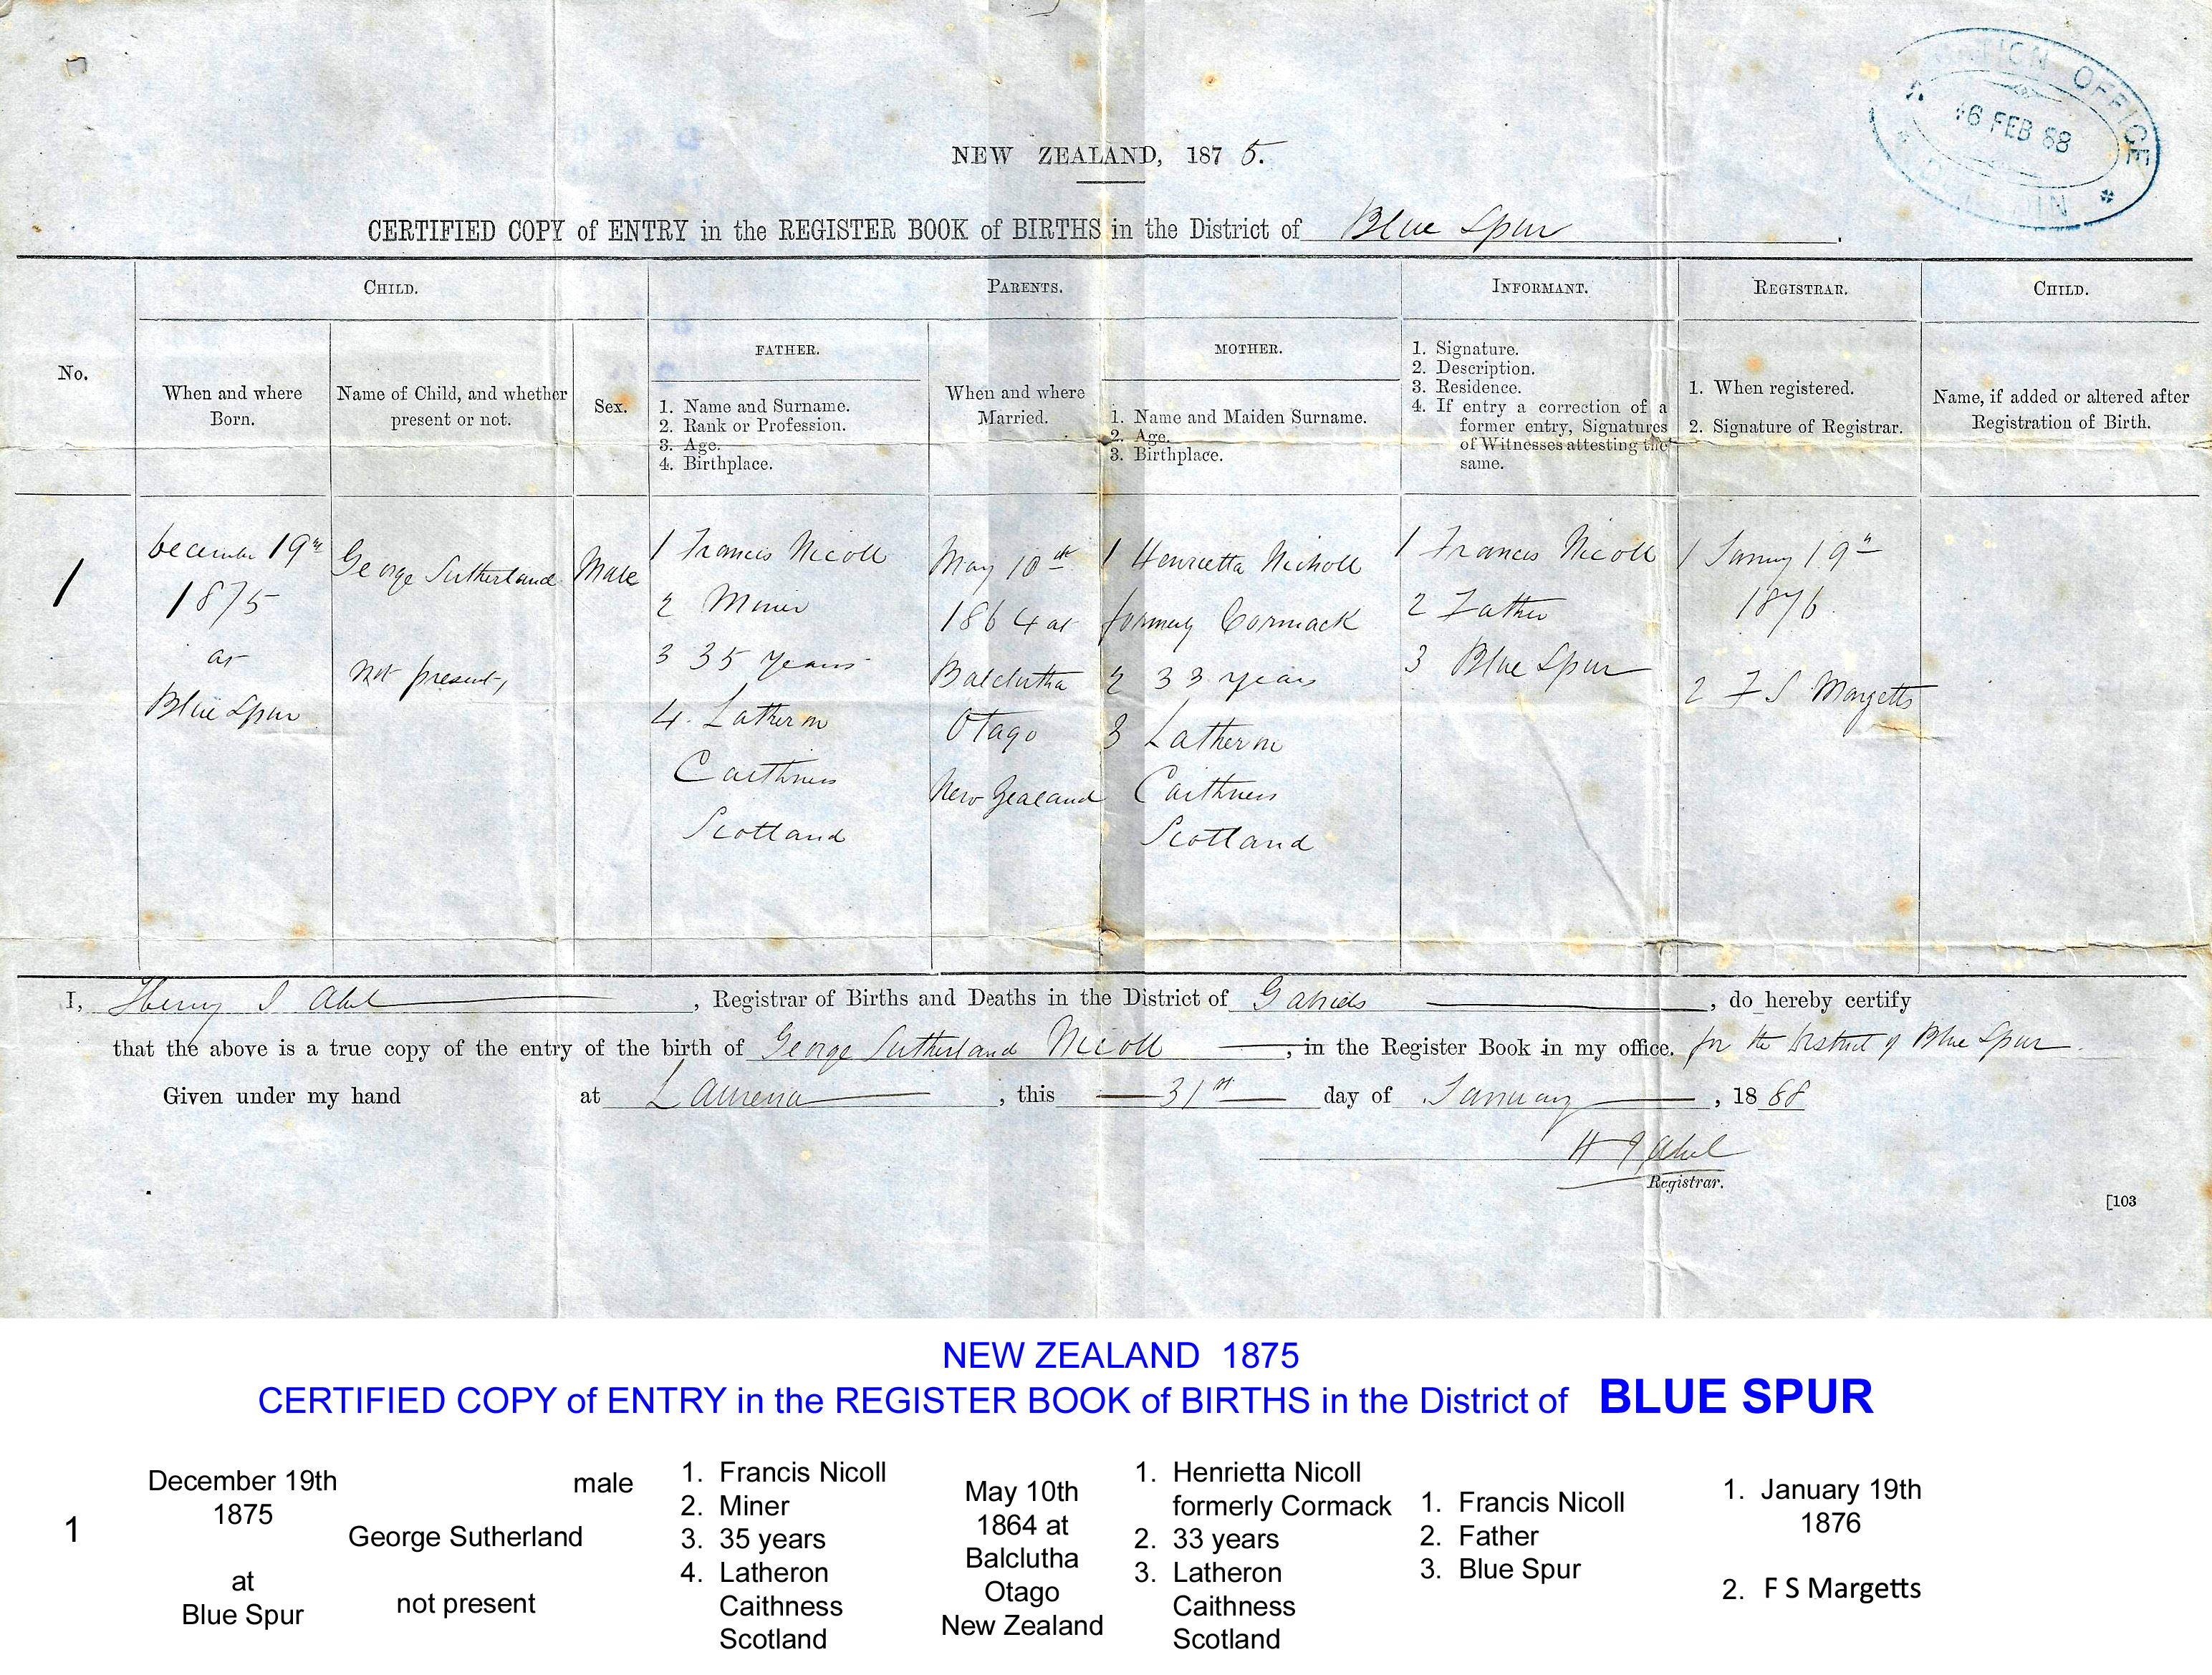 OFFICE
16 FEB 88
NEW ZEALAND, 1875.
CERTIFIED COPY of ENTRY in the REGISTER BOOK of BIRTHS in the District of Blue Spur.
CHILD.
PARENTS.
INFORMANT.
REGISTRAR.
CHILD.
No.
When and where
Born.
Name of Child, and whether
present or not.
Sex.
FATHER.
1. Name and Surname.
2. Rank or Profession.
3. Age.
4. Birthplace.
When and where
Married.
MOTHER.
1. Name and Maiden Surname.
2. Age.
3. Birthplace.
1. Signature.
2. Description.
3. Residence.
4. If entry a correction of a
former entry, Signatures
of Witnesses attesting the
same.
1. When registered.
2. Signature of Registrar.
Name, if added or altered after
Registration of Birth.
1
December 19th
1875
at
Blue Spur
George Sutherland
not present,
Male
1 Francis Nicoll
2 Miner
3 35 years
4. Latheron
Caithness
Scotland
May 10th
1864 at
Balclutha
Otago
New Zealand
1 Henrietta Nicholl
formerly Cormack
2 33 years
3 Latheron
Caithness
Scotland
1 Francis Nicoll
2 Father
3 Blue Spur
1 January 19th
1876
2 F S Margetts
I, Henry J Abel, Registrar of Births and Deaths in the District of Gabriels, do hereby certify
that the above is a true copy of the entry of the birth of George Sutherland Nicoll, in the Register Book in my office. for the District of Blue Spur.
Given under my hand at Lawrence, this 31st day of January, 1888
H J Abel
Registrar.
[103
NEW ZEALAND 1875
CERTIFIED COPY of ENTRY in the REGISTER BOOK of BIRTHS in the District of BLUE SPUR
1
December 19th
1875
at
Blue Spur
George Sutherland
not present
male
1. Francis Nicoll
2. Miner
3. 35 years
4. Latheron
Caithness
Scotland
May 10th
1864 at
Balclutha
Otago
New Zealand
1. Henrietta Nicoll
formerly Cormack
2. 33 years
3. Latheron
Caithness
Scotland
1. Francis Nicoll
2. Father
3. Blue Spur
1. January 19th
1876
2. F S Margetts